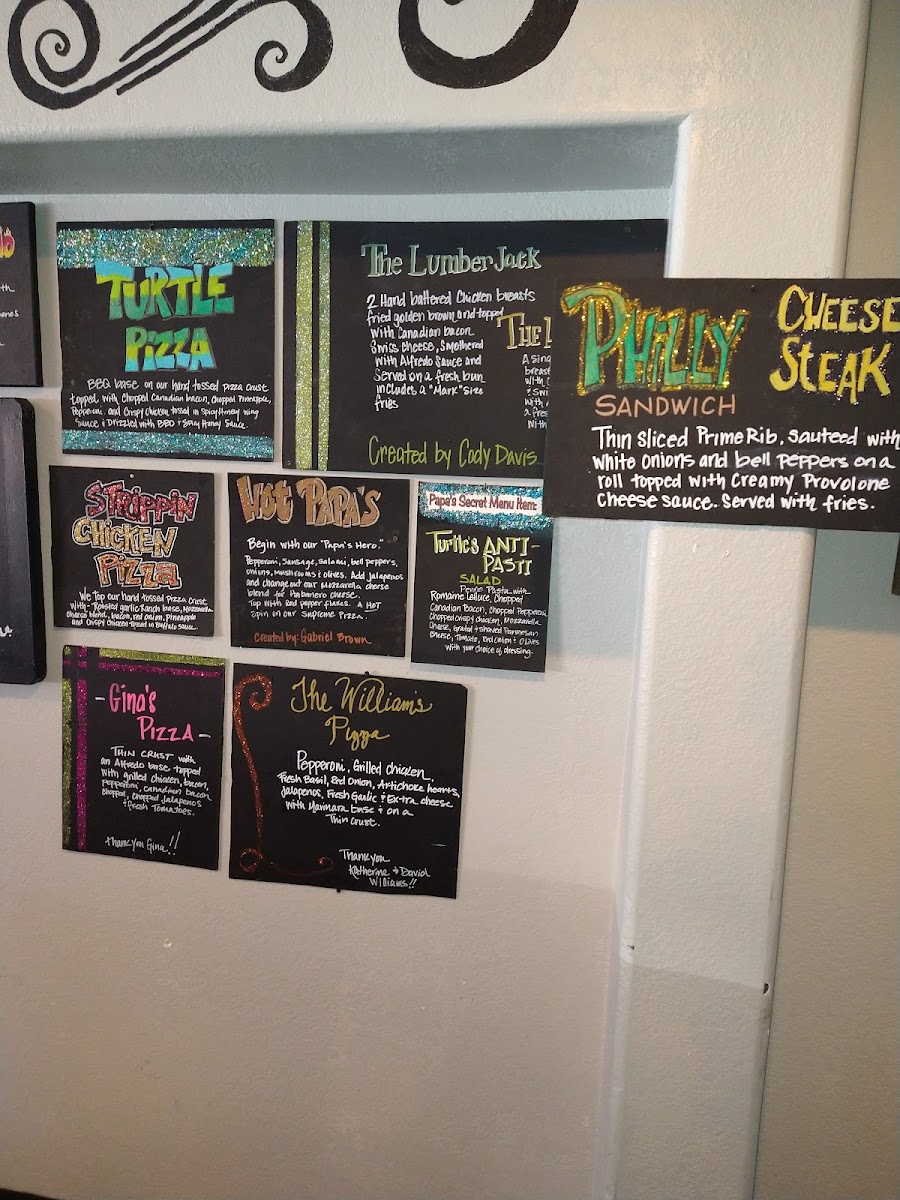 TURTLE
PIZZA
BBQ base on our hand-tossed pizza crust
topped with Chopped Canadian bacon, Chopped Pineapple,
Pepperoni, and Crispy Chicken tossed in Spicy Honey wing
Sauce & Drizzled with BBQ & Spicy Honey Sauce.
The LumberJack
2 Hand battered Chicken breasts
fried golden brown and topped
with Canadian bacon
Swiss Cheese, Smothered
with Alfredo Sauce and
Served on a fresh bun
includes a "Mark" Size
fries
Created by Cody Davis
THE
A sing
breast
with
& Swi
with
2 Fre
with
PHILLY
SANDWICH
CHEESE
STEAK
Thin Sliced Prime Rib, sauteed with
white onions and bell peppers on a
roll topped with Creamy Provolone
Cheese sauce. Served with fries.
STRIPPIN
CHICKEN
PIZZA
We top our hand tossed pizza crust
with- Roaster garlic Ranch base, Mozzarella
cheese blend, bacon, red onion, Pineapple
and Crispy chicken tossed in Buffalo sauce.
HOT PAPA'S
Begin with our "Papa's Hero."
Pepperoni, Sausage, Salami, bell peppers,
onions, mushrooms & olives. Add jalapenos
and change out our Mozzarella cheese
blend for Habanero cheese.
Top with red pepper flakes. A HOT
Spin on our Supreme Pizza.
Created by: Gabriel Brown
Papa's Secret Menu Item:
Turtle's ANTI-
PASTI
SALAD
Penne Pasta with
Romaine Lettuce, Chopped
Canadian Bacon, Chopped Pepperoni,
Chopped crispy chicken, Mozzarella
Cheese, Grated & Shaved Parmesan
Cheese, Tomato, Red Onion & Olives
with your choice of dressing.
- Gina's
PIZZA -
THIN CRUST with
an Alfredo base topped
with grilled chicken, bacon,
Pepperoni, Canadian bacon
Chopped, Chopped Jalapenos
& fresh Tomatoes.
thank you Gina!!
The William's
Pizza
Pepperoni, Grilled chicken,
Fresh Basil, Red Onion, Artichoke hearts,
Jalapenos, Fresh Garlic & Extra cheese
with Marinara base & on a
Thin Crust.
Thank you
Katherine & David
Williams!!